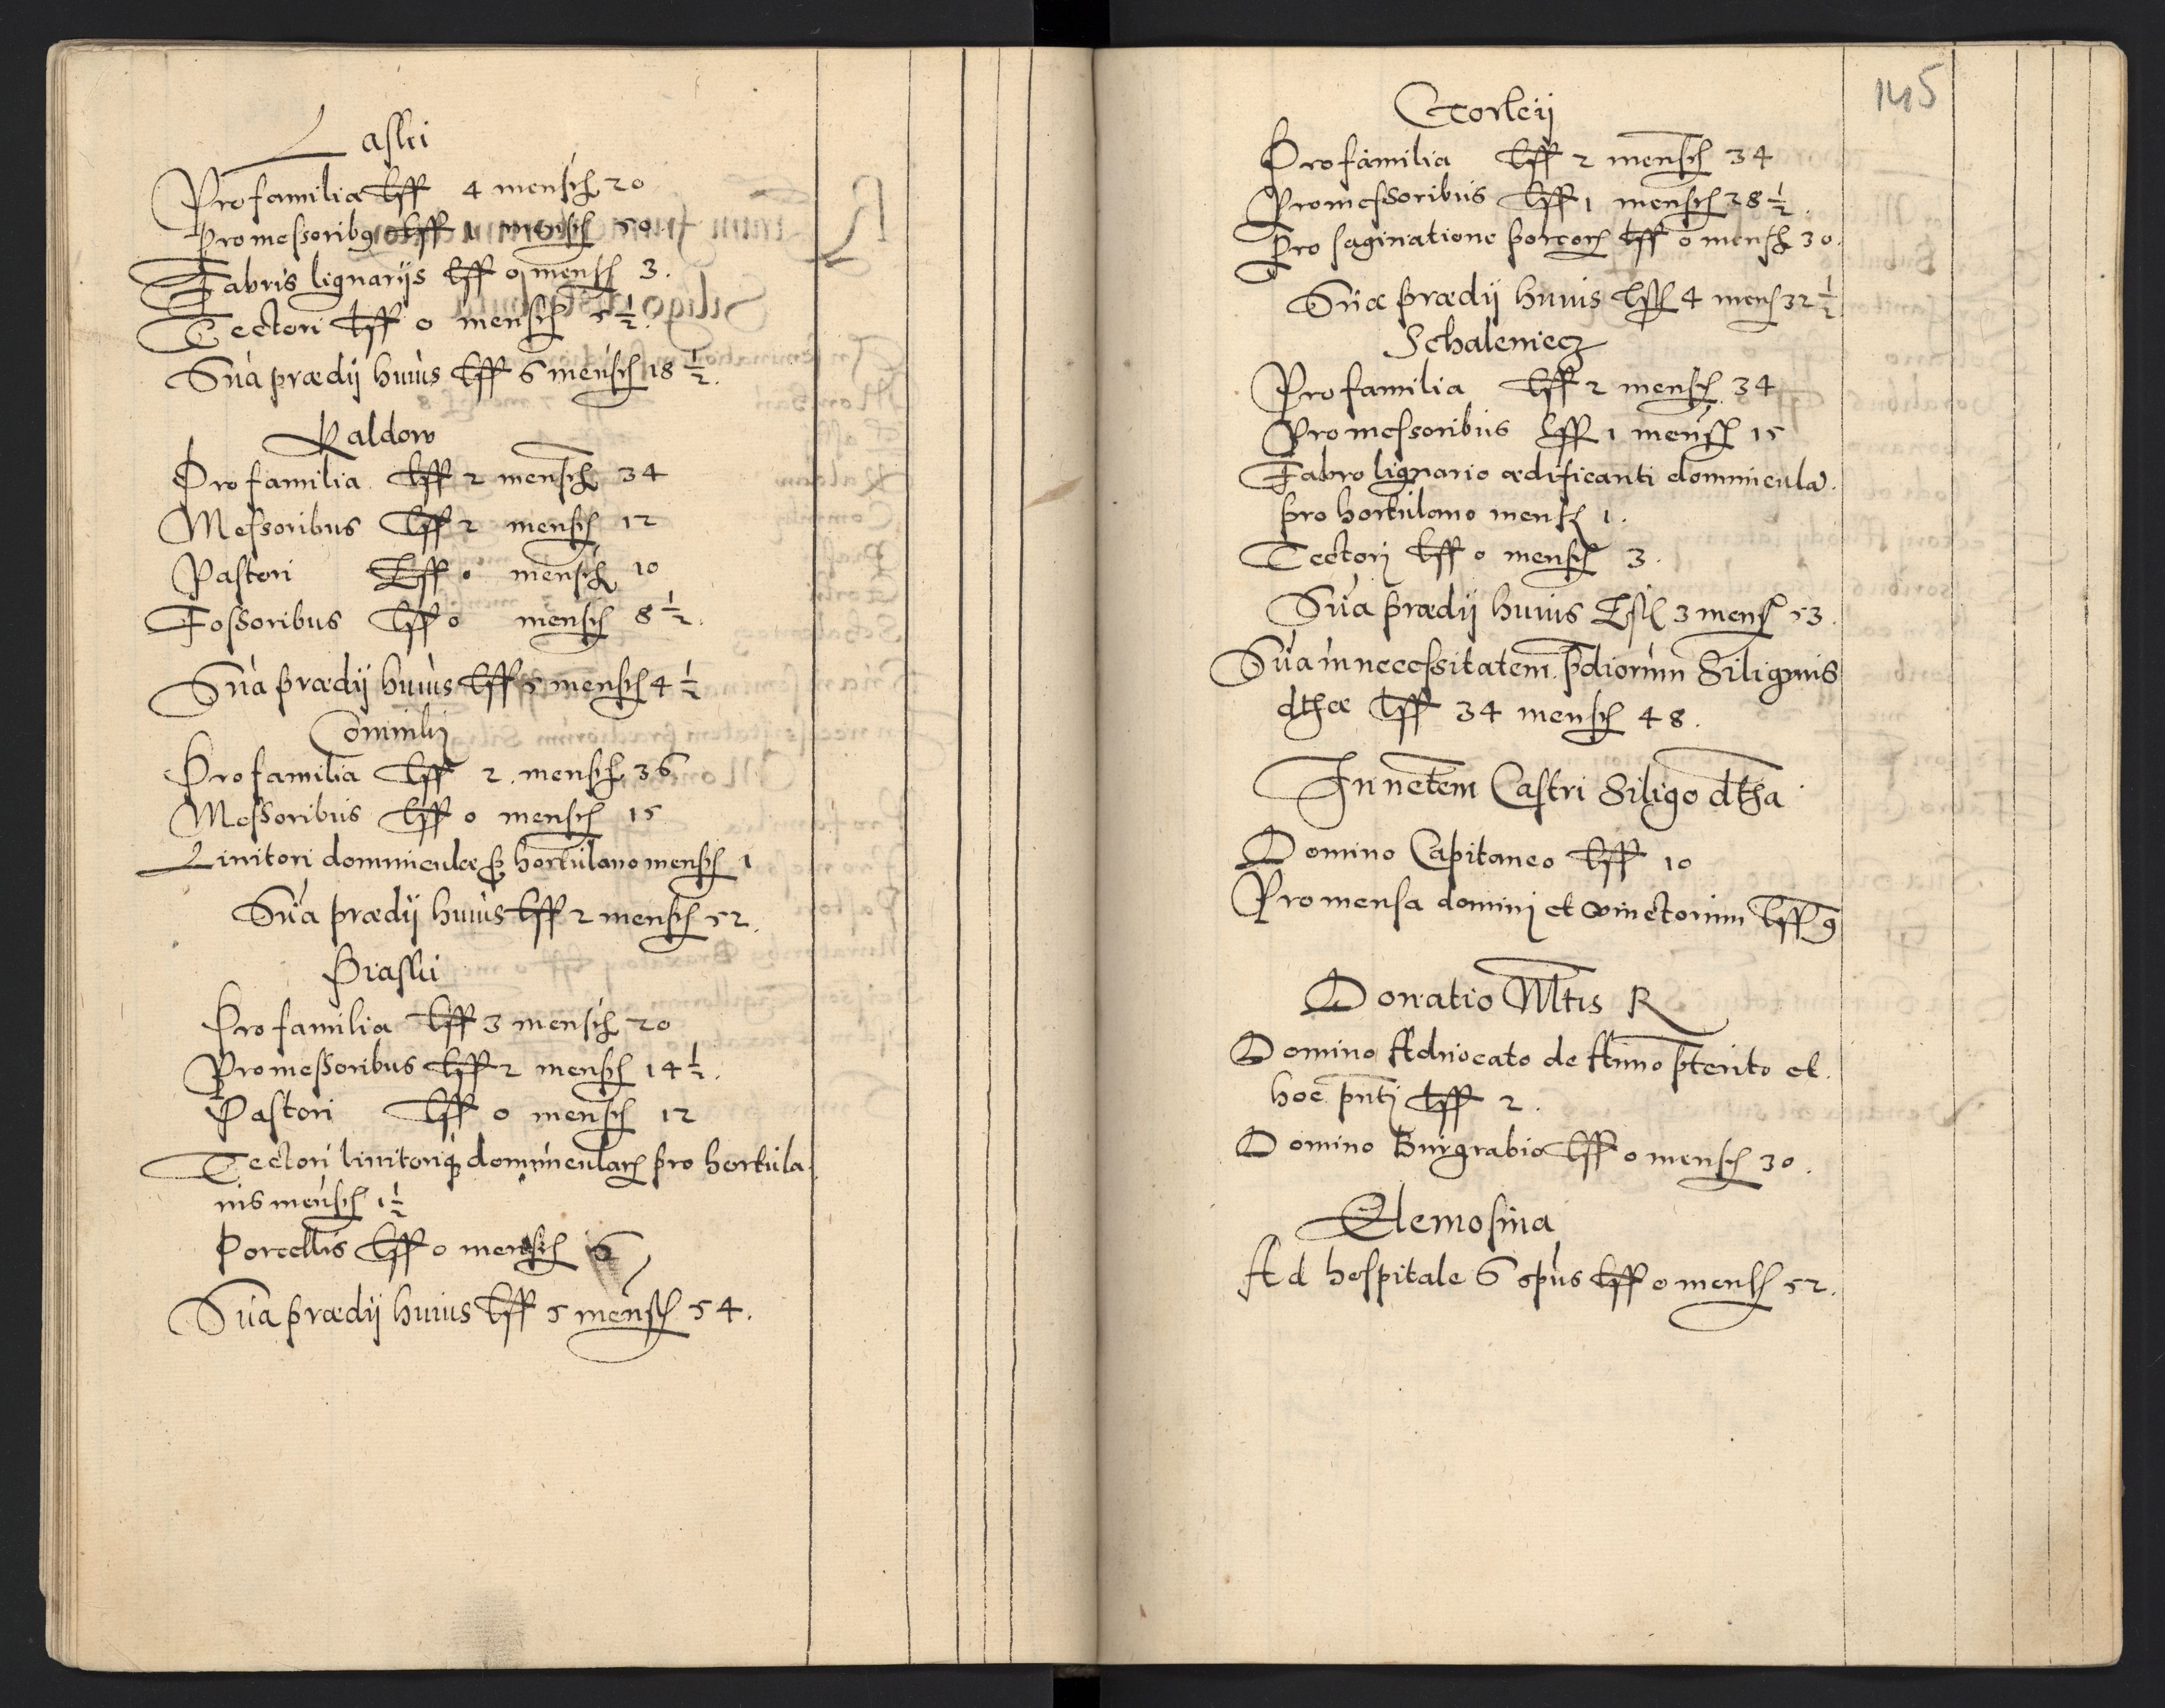 Lasski
Pro familia Lff 4 mensch 20
Pro messoribq Lff 1 mensch 50
Fabris lignarijs Lff 0 mensch 3.
Tectori Lff 0 mensch 5 1/2.
Sūa prædij huius Lff 6 mensch 18 1/2.
Kaldow
Pro familia Lff 2 mensch 34
Messoribus Lff 2 mensch 12
Pastori Lff 0 mensch 10
Fossoribus Lff 0 mensch 8 1/2.
Sūa prædij huius Lff 5 mensch 4 1/2
Cominki
Pro familia Lff 2. mensch 36
Messoribus Lff 0 mensch 15
Linitori dominiculæ p hortulano mensch 1
Sūa prædij huius Lff 2 mensch 52.
Piasski
Pro familia Lff 3 mensch 20
Pro messoribus Lff 2 mensch 14 1/2.
Pastori Lff 0 mensch 12
Tectori linitoriq dominicularz pro hortula
nis mensch 1 1/2
Porcellis Lff 0 mensch 6
Sūa prædij huius Lff 5 mensch 54.
145
Gorleij
Pro familia Lff 2 mensch 34
Pro messoribus Lff 1 mensch 28 1/2.
Pro saginatione porcorz Lff 0 mensch 30.
Sūa prædij huius Lff 4 mens 32 1/2
Schaleniecz
Pro familia Lff 2 mensch 34
Pro messoribus Lff 1 mensch 15
Fabro lignario ædificanti dominiculā.
pro hortulano mensch 1.
Tectori Lff 0 mensch 3.
Sūa prædij huius Lff 3 mensch 53.
Sūa in necessitatem pdiorum Siliginis
dthæ Lff 34 mensch 48.
In nctem Castri Siligo dtha
Domino Capitaneo Lff 10
Pro mensa domini et vinctorum Lff 9
Donatio Mtis R
Domino Aduocato de Anno pterito et
hoc pnti Lff 2.
Domino Burgrabio Lff 0 mensch 30.
Elemosina
Ad hospitale S spūs Lff 0 mensch 52.